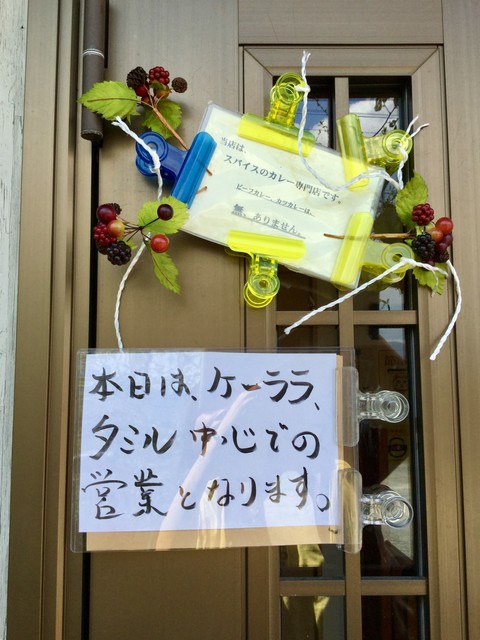 当店は、
スパイスのカレー専門店です。
ビーフカレー、カツカレーは、
無、ありません。
本日は、ケーララ、
タミル中じでの
営業となります。